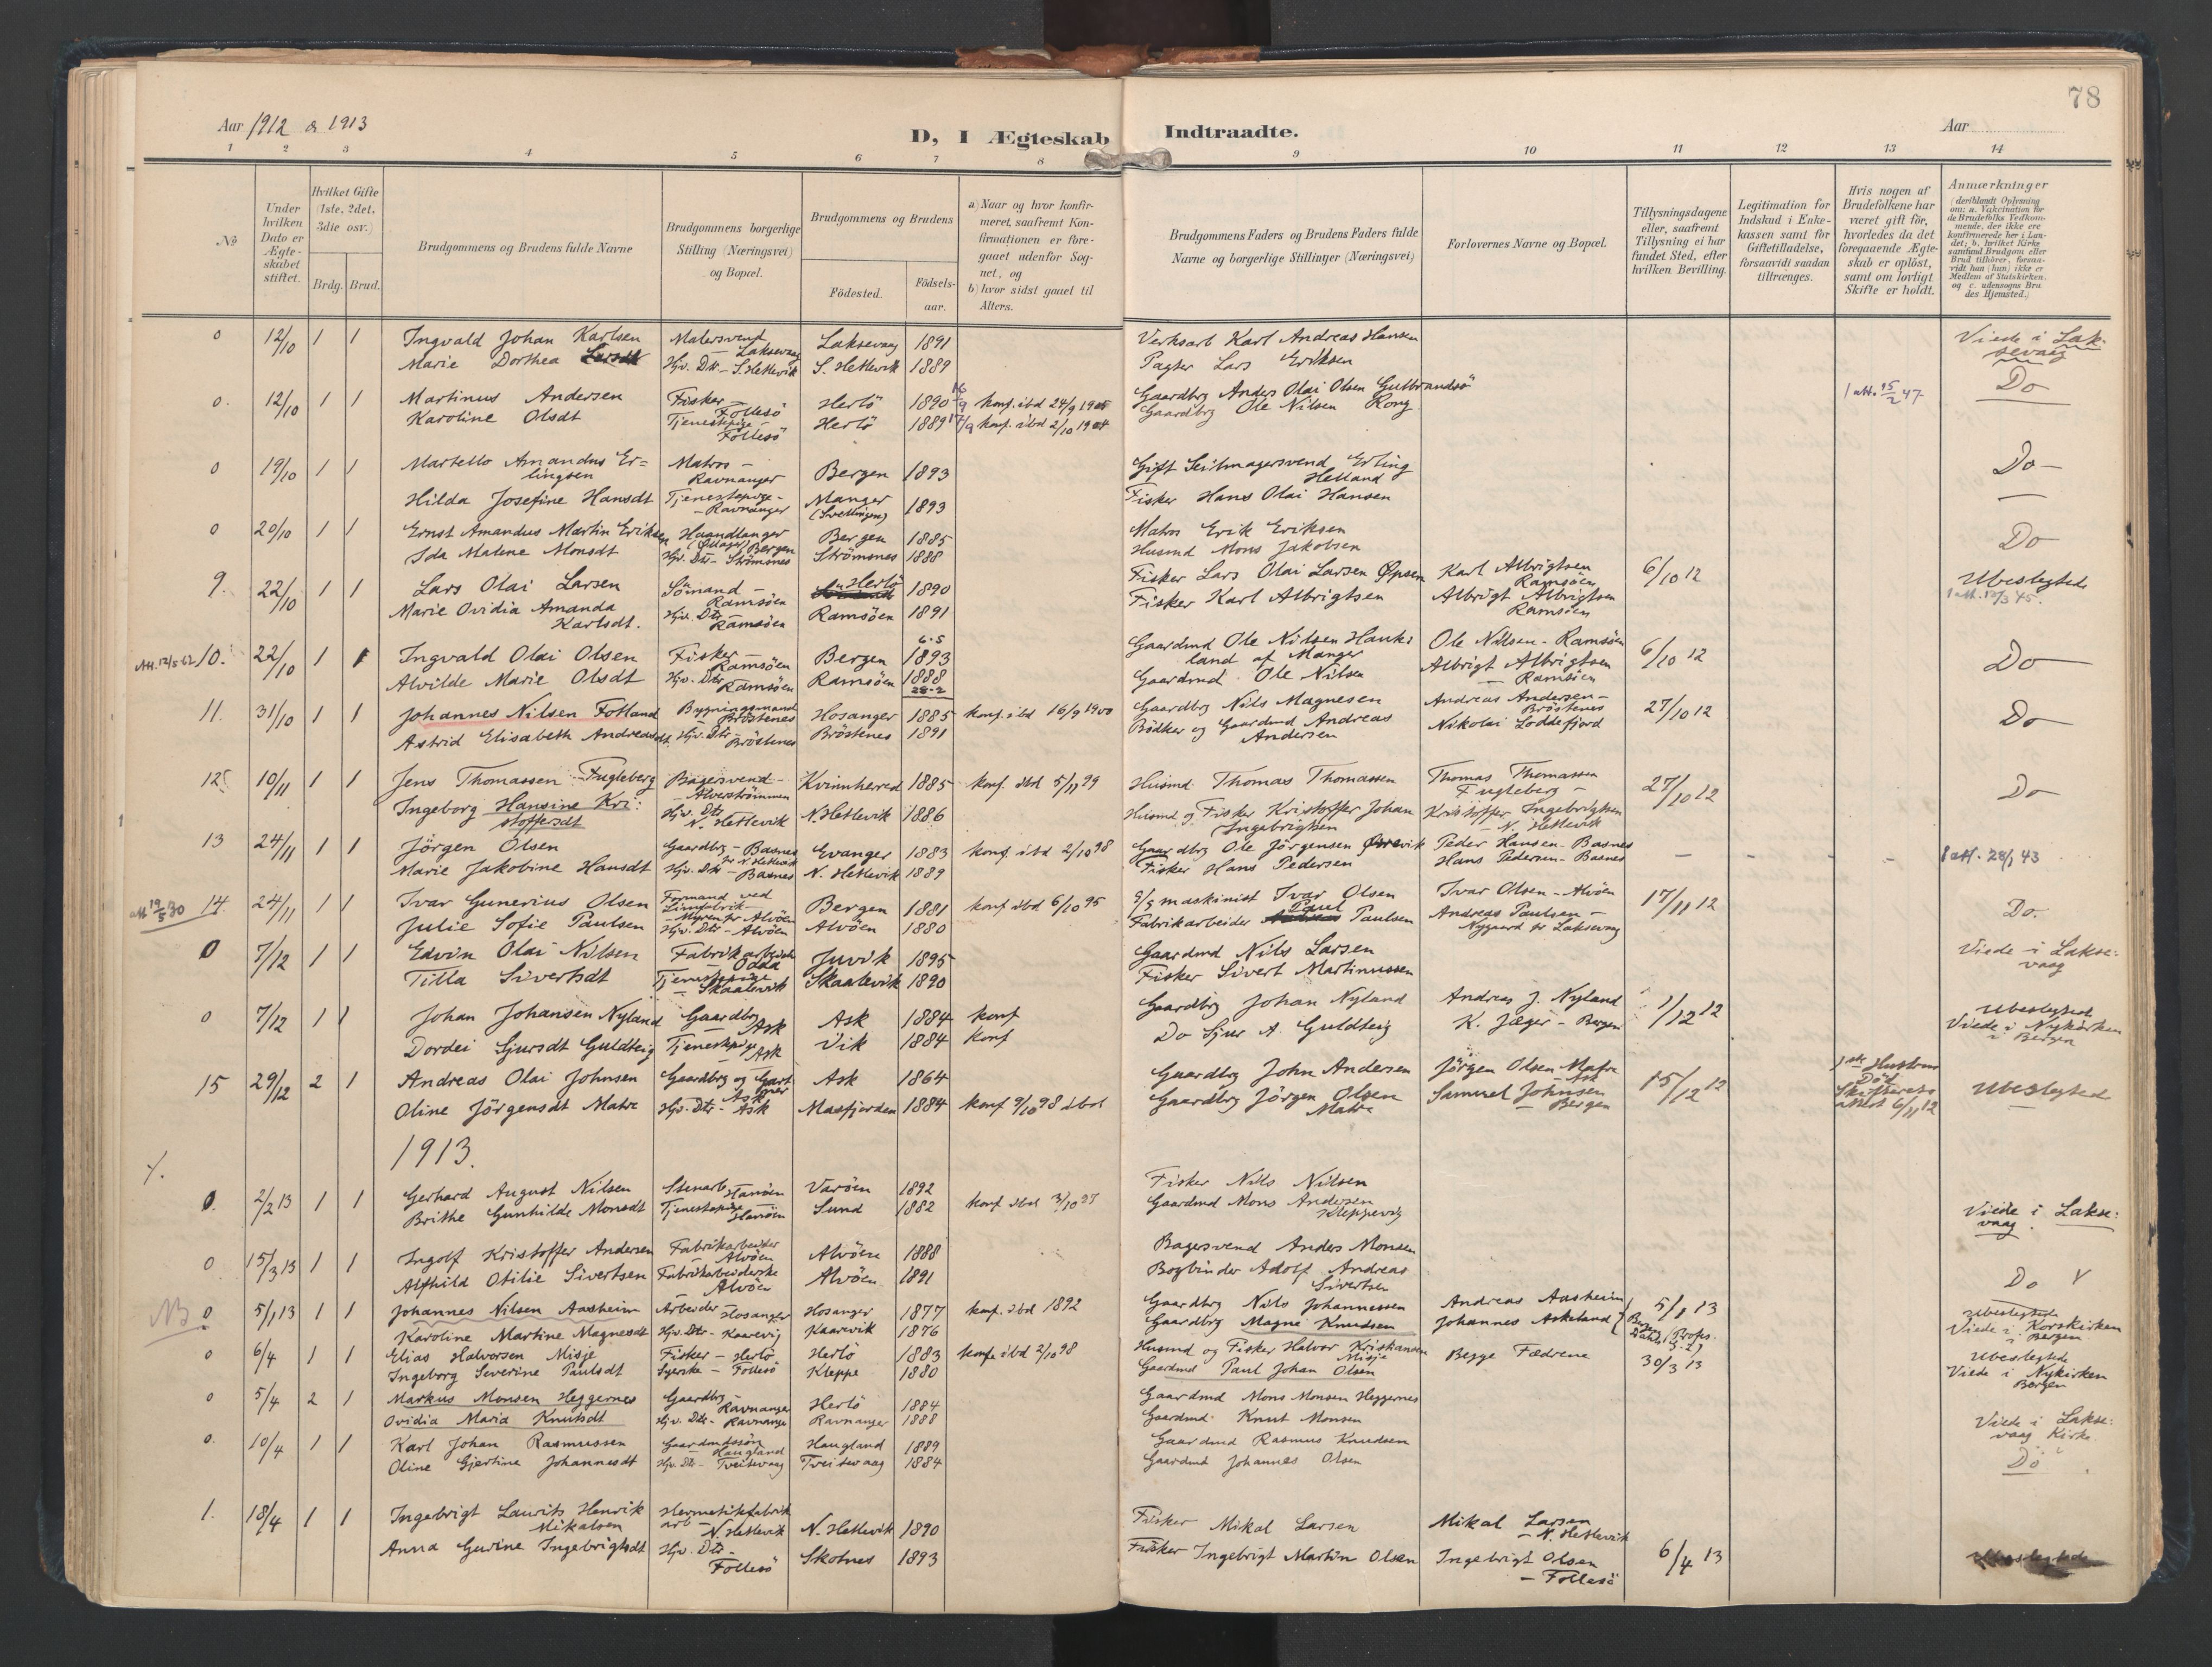 78
Aar 1912 & 1913
D, I Ægteskab Indtraadte.
Aar
1 2 3 4 5 6 7 8 9 10 11 12 13 14
No
Under hvilken Dato er Ægteskabet stiftet.
Hvilket Gifte (1ste, 2det, 3die osv.)
Brdg. Brud.
Brudgommens og Brudens fulde Navne
Brudgommens borgerlige Stilling (Næringsvei) og Bopæl.
Brudgommens og Brudens
Fødested.
Fødselsaar.
a) Naar og hvor konfirmeret, saafremt Konfirmationen er foregaaet udenfor Sognet, og
b) hvor sidst gaaet til Alters.
Brudgommens Faders og Brudens Faders fulde Navne og borgerlige Stillinger (Næringsvei)
Forlovernes Navne og Bopæl.
Tillysningsdagene eller, saafremt Tillysning ei har fundet Sted, efter hvilken Bevilling.
Legitimation for Indskud i Enkekassen samt for Giftetilladelse, forsaavidt saadan tiltrænges.
Hvis nogen af Brudefolkene har været gift før, hvorledes da det foregaaende Ægteskab er opløst, samt om lovligt Skifte er holdt.
Anmærkninger (deriblandt Oplysning om: a. Vakcination for de Brudefolks Vedkommende, der ikke ere konfirmerede her i Landet; b. hvilket Kirkesamfund Brudgom eller Brud tilhører, forsaavidt han (hun) ikke er Medlem af Statskirken. og c. udensogns Brudes Hjemsted.)
0 12/10 1 1 Ingvald Johan Karlsen Malersvend Laksevaag Laksevaag 1891 Verksarb Karl Andreas Hansen Viede i Laksevaag
Marie Dorthea Larsdt Hjv. Dtr - S. Hetlevik S. Hetlevik 1889 Pagter Lars Eriksen
0. 12/10 1 1 Martinus Andersen Fisker - Follesö Herlö 1890 16/9 konf. ibd 24/9 1905 Gaardbrg Anders Olai Olsen Gulbrandsö 1 att. 15/2 47 Do
Karoline Olsdt Tjenestepige - Follesö Herlö 1889 17/9 konf. ibd 2/10 1904 Gaardbrg Ole Nilsen Rong
0 19/10 1 1 Martello Amandus Erlingsen Matros - Ravnanger Bergen 1893 Gift Seilmagersvend Erling Helland Do
Hilda Josefine Hansdt Tjenestepige - Ravnanger Manger 1893 Fisker Hans Olai Hansen
0 20/10 1 1 Ernst Amandus Martin Eriksen Haandlanger Bergen Bergen 1885 Matros Erik Eriksen Do
Ida Malene Monsdt Hjv. Dtr - Strömsnes Strömsnes 1888 Husmd Mons Jakobsen
9. 22/10 1 1 Lars Olai Larsen Sömand - Ramsöen Herlö 1890 Fisker Lars Olai Larsen Øpsen Karl Albrigtsen Ramsöen 6/10 12 Ubeslegtede
Marie Ovidia Amanda Karlsdt. Hjv. Dtr Ramsöen Ramsöen 1891 Fisker Karl Albrigtsen Albrigt Albrigtsen Ramsöen 1 att. 12/3 45.
Att. 12/5 62 10. 22/10 1 1 Ingvald Olai Olsen Fisker - Ramsöen Bergen 6.5 1893 Gaardmd Ole Nilsen Haukeland af Manger Ole Nilsen - Ramsöen 6/10 12 Do
Alvilde Marie Olsdt Hjv. Dtr Ramsöen Ramsöen 1888 28-2 Gaardmd Ole Nilsen Albrigt Albrigtsen - Ramsöen
11. 31/10 1 1 Johannes Nilsen Fotland Bygningsmand Bröstenes Hosanger 1885 konf. ibd 16/9 1900 Gaardbrg Nils Magnesen Andreas Andersen - Bröstenes 27/10 12 Do
Astrid Elisabeth Andreasdt. Hjv. Dtr - Bröstenes Bröstenes 1891 Bödker og Gaardmd Andreas Andersen Nikolai Loddefjord
12. 10/11 1 1 Jens Thomassen Fugleberg Bagersvend - Alverströmmen Kvinnherred 1885 konf. ibd 5/11 99 Husmd. Thomas Thomassen Thomas Thomassen Fugleberg - 27/10 12 Do
Ingeborg Hansine Kristoffersdt Hjv. Dtr N. Hetlevik N. Hetlevik 1886 Husmd og Fisker Kristoffer Johan Ingebrigtsen Kristoffer Ingebrigtsen - N. Hetlevik
13 24/11 1 1 Jörgen Olsen Gaardbrg - Basnes pr N. Hetlevik Evanger 1883 konf ibd 2/10 98 Gaardbrg Ole Jörgensen Peder Hansen - Basnes - - - - 1 att. 28/1 43
Marie Jakobine Hansdt Hjv. Dtr - Basnes N. Hetlevik 1889 Fisker Hans Pedersen Hans Pedersen - Basnes
att 19/5 30 14. 24/11 1 1 Ivar Gunerius Olsen Formand ved Limfabrik - Myren pr Alvöen Bergen 1881 konf ibd 6/10 95 maskinist Ivar Olsen Ivar Olsen - Alvöen 17/11 12 Do.
Julie Sofie Paulsen Hjv. Dtr - Alvöen Alvöen 1880 Fabrikarbeider Paul Paulsen Andreas Paulsen - Nygaard pr Laksevaag
0 7/12 1 1 Edvin Olai Nilsen Fabrikarbeider Odda Juvik 1895 Gaardmd Nils Larsen Viede i Laksevaag
Tilla Sivertsdt Tjenestepige - Skaalevik Skaalevik 1890 Fisker Sivert Martinussen
0 7/12 1 1 Johan Johansen Nyland Gaardbrg Ask Ask 1884 konf Gaardbrg Johan Nyland Andreas J. Nyland 1/12 12 Ubeslegtede Viede i Nykirken i Bergen
Dordei Sjursdt Guldteig Tjenestepige Ask Vik 1884 konf Do Sjur A. Guldteig K. Jæger - Bergen
15 29/12 2 1 Andreas Olai Johnsen Gaardbrg og Gartner Ask Ask 1864 Gaardbrg John Andersen Jörgen Olsen Matre Ask 15/12 12 1ste Hustru Död Skifterets attest 6/11 12 Ubeslegtede
Oline Jörgensdt Matre Hjv. Dtr - Ask Masfjorden 1884 konf 9/10 98 ibd Gaardbrg Jörgen Olsen Matre Samuel Johnsen - Bergen
1913.
0. 2/2 13 1 1 Gerhard August Nilsen Stenarb Hanöen Varöen 1892 Fisker Nils Nilsen Viede i Laksevaag.
Brithe Gunhilde Monsdt Tjenestepige Hanöen Sund 1882 konf ibd 3/10 97 Gaardmd Mons Andersen Kleppevig
0 15/3 13 1 1 Ingolf Kristoffer Andersen Fabrikarbeider Alvöen Alvöen 1888 Bagersvend Anders Monsen Do
Alfhild Otilie Sivertsen Fabrikarbeiderske Alvöen Alvöen 1891 Bogbinder Adolf Andreas Sivertsen
NB 0 5/1 13 1 1 Johannes Nilsen Aasheim Arbeider Hosanger Hosanger 1877 konf. ibd 1892 Gaardbrg Nils Johannessen Andreas Aasheim 5/1 13 Ubeslegtede Viede i Korskirken i Bergen
Karoline Martine Magnesdt Hjv. Dtr - Kaarevig Kaarevik 1876 Gaardbrg Magne Knudsen Johannes Askeland
0 6/4 1 1 Elias Halvorsen Misje Fisker - Herlö Herlö 1883 konf ibd 2/10 98 Husmd og Fisker Halvor Kristiansen Misje Begge Fædrene 30/3 13 Ubeslegtede Viede i Nykirken Bergen
Ingeborg Severine Paulsdt Syerske - Follesö Kleppe 1880 Gaardmd Paul Johan Olsen
0 5/4 2 1 Markus Monsen Heggernes Gaardbrg - Ravnanger Herlö 1884 Gaardmd Mons Monsen Heggernes Viede i Laksevaag Kirke
Ovidia Maria Knutsdt Hjv. Dtr - Ravnanger Ravnanger 1888 Gaardmd Knut Monsen
0. 10/4 1 1 Karl Johan Rasmussen Gaardmdssön Haugland Haugland 1889 Gaardmd Rasmus Knudsen Do
Oline Gjertine Johannesdt Hjv. Dtr - Tveitevaag Tveitevaag 1884 Gaardmd Johannes Olsen
1. 18/4 1 1 Ingebrigt Laurits Henrik Mikalsen Hermetikfabrik arb - N. Hetlevik N. Hetlevik 1890 Fisker Mikal Larsen Mikal Larsen - N. Hetlevik 6/4 13 Ubeslegtede
Anna Gurine Ingebrigtsdt Hjv. Dtr - Follesö Skotnes 1893 Fisker Ingebrigt Martin Olsen Ingebrigt Olsen - Follesö